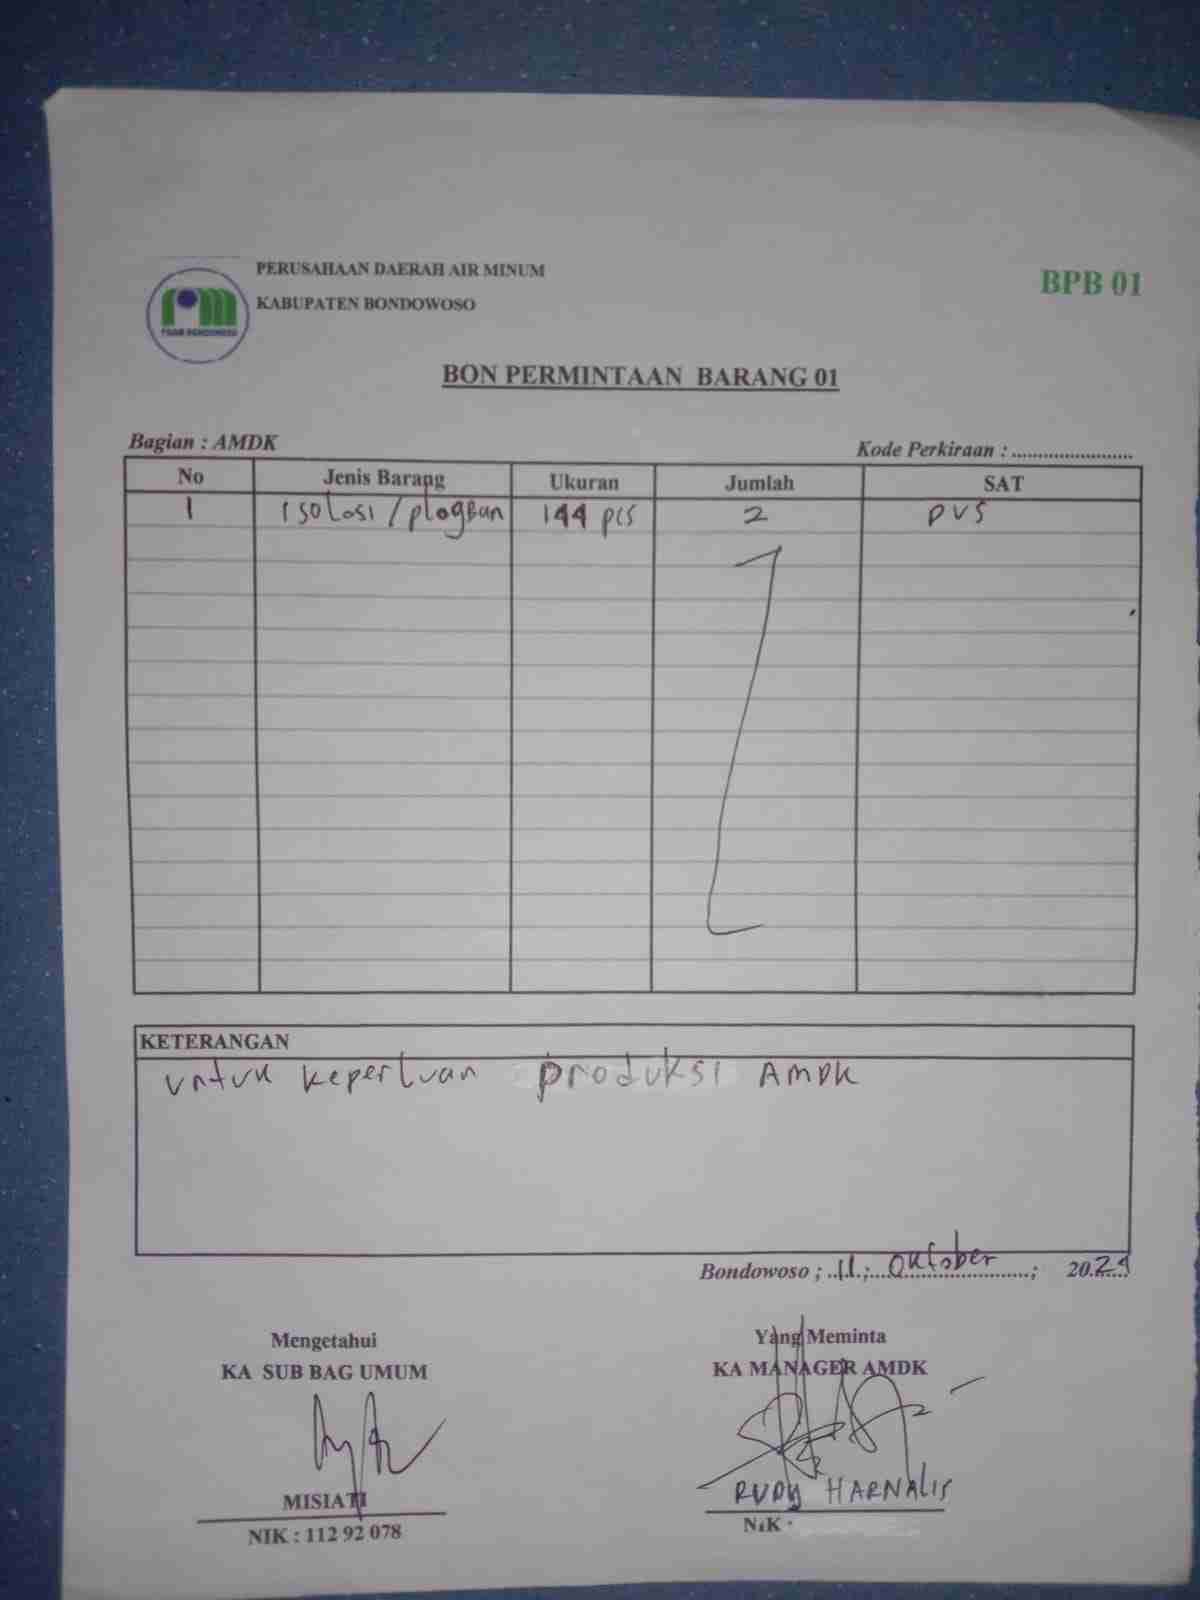 PERUSAHAAN DAERAH AIR MINUM
KABUPATEN BONDOWOSO
BPB 01
PDAM BONDOWOSO
BON PERMINTAAN BARANG 01
Bagian : AMDK
Kode Perkiraan : ........................
No Jenis Barang Ukuran Jumlah SAT
1 Isolasi / plagban 144 pcs 2 pvs
KETERANGAN
untuk keperluan produksi AMDK
Bondowoso ; 11 ; Oktober ; 2024
Mengetahui
KA SUB BAG UMUM
MISIATI
NIK : 112 92 078
Yang Meminta
KA MANAGER AMDK
RUDY HARNALIS
NIK :